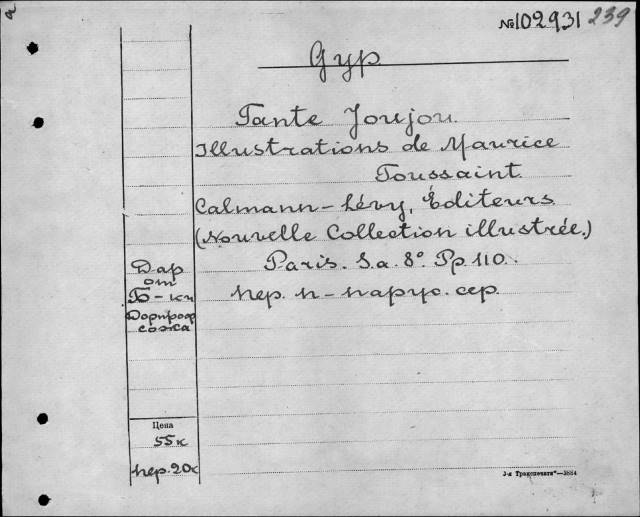 №102931 239
Gyp
Tante Joujou.
Illustrations de Maurice
Toussaint.
Calmann-Lévy, Éditeurs
(Nouvelle Collection illustrée.)
Paris. S.a. 8° Pp. 110.
пер. п-парус. сер.
Дар
от
Б-ки
Дорпроф
сожа
Цена
55к
пер. 20к
3-я Транспечати"—3884